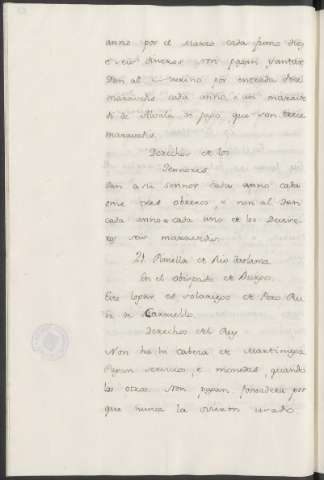 anno por el Marzo cada fumo diez
e seis dineros non pagan yantar
Dan al Merino por entrada doze
maravedis cada anno, e un maravedi
di de que son treze
maravedis.
Derechos de los
Sennores
Dan a su Sennor cada anno cada
ome tres obreros, e non al Dan
cada anno a cada uno de los Devise
ros seis maravedis.
21 Pinilla de
En el obispado de Burgos.
Este logar es solariego de Pero Rui
z Carriello.
Derechos del Rey
Non ha la cabeza de Martiniega
Pagan servicios, e monedas quando
los otros. Non pagan fonsadera por
que nunca la ovieron usado.